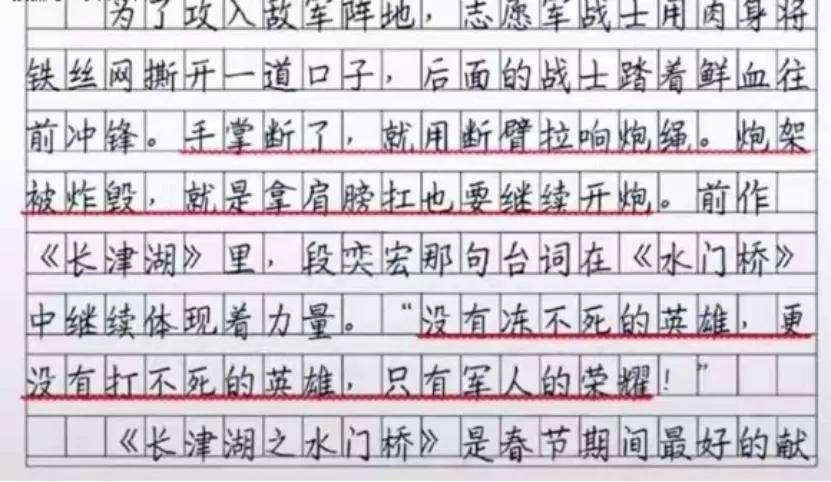 为了攻入敌军阵地，志愿军战士用肉身将
铁丝网撕开一道口子，后面的战士踏着鲜血往
前冲锋。手掌断了，就用断臂拉响炮绳。炮架
被炸毁，就是拿肩膀扛也要继续开炮。前作
《长津湖》里，段奕宏那句台词在《水门桥》
中继续体现着力量。“没有冻不死的英雄，更
没有打不死的英雄，只有军人的荣耀！”
《长津湖之水门桥》是春节期间最好的献